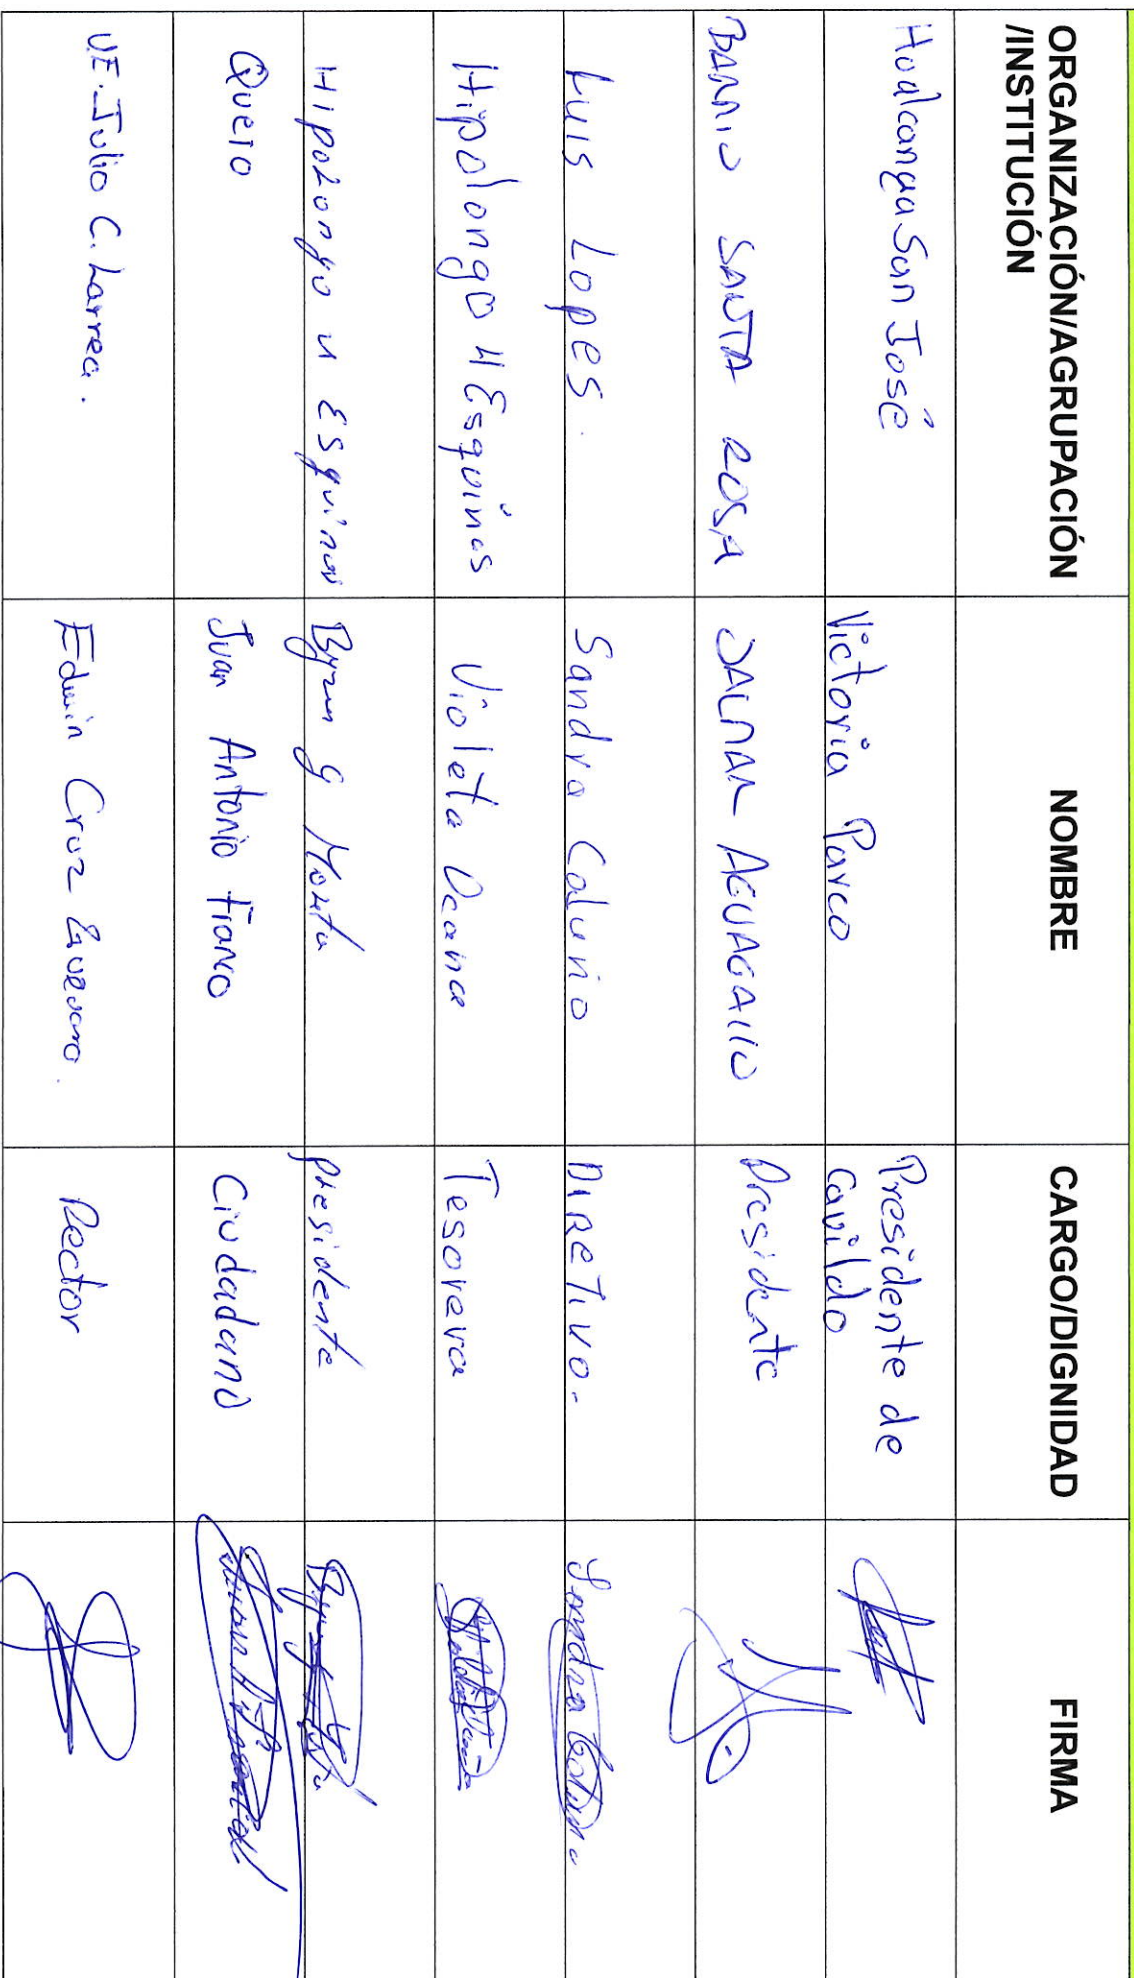 ORGANIZACIÓN/AGRUPACIÓN
/INSTITUCIÓN
NOMBRE
CARGO/DIGNIDAD
FIRMA
Hualcanga San José
Victoria Parco
Presidente de
Cavildo
BARRIO SANTA ROSA
AGUAGALLO
Presidente
Luis Lopes.
Sandra
DIRETIVO.
Sandra
Hipolongo 4 Esquinas
Violeta
Tesorera
Hipolongo 4 Esquinas
Byron g
presidente
Quero
Juan Antonio Franco
Ciudadano
U.E. Julio C. Larrea.
Edwin Cruz
Rector